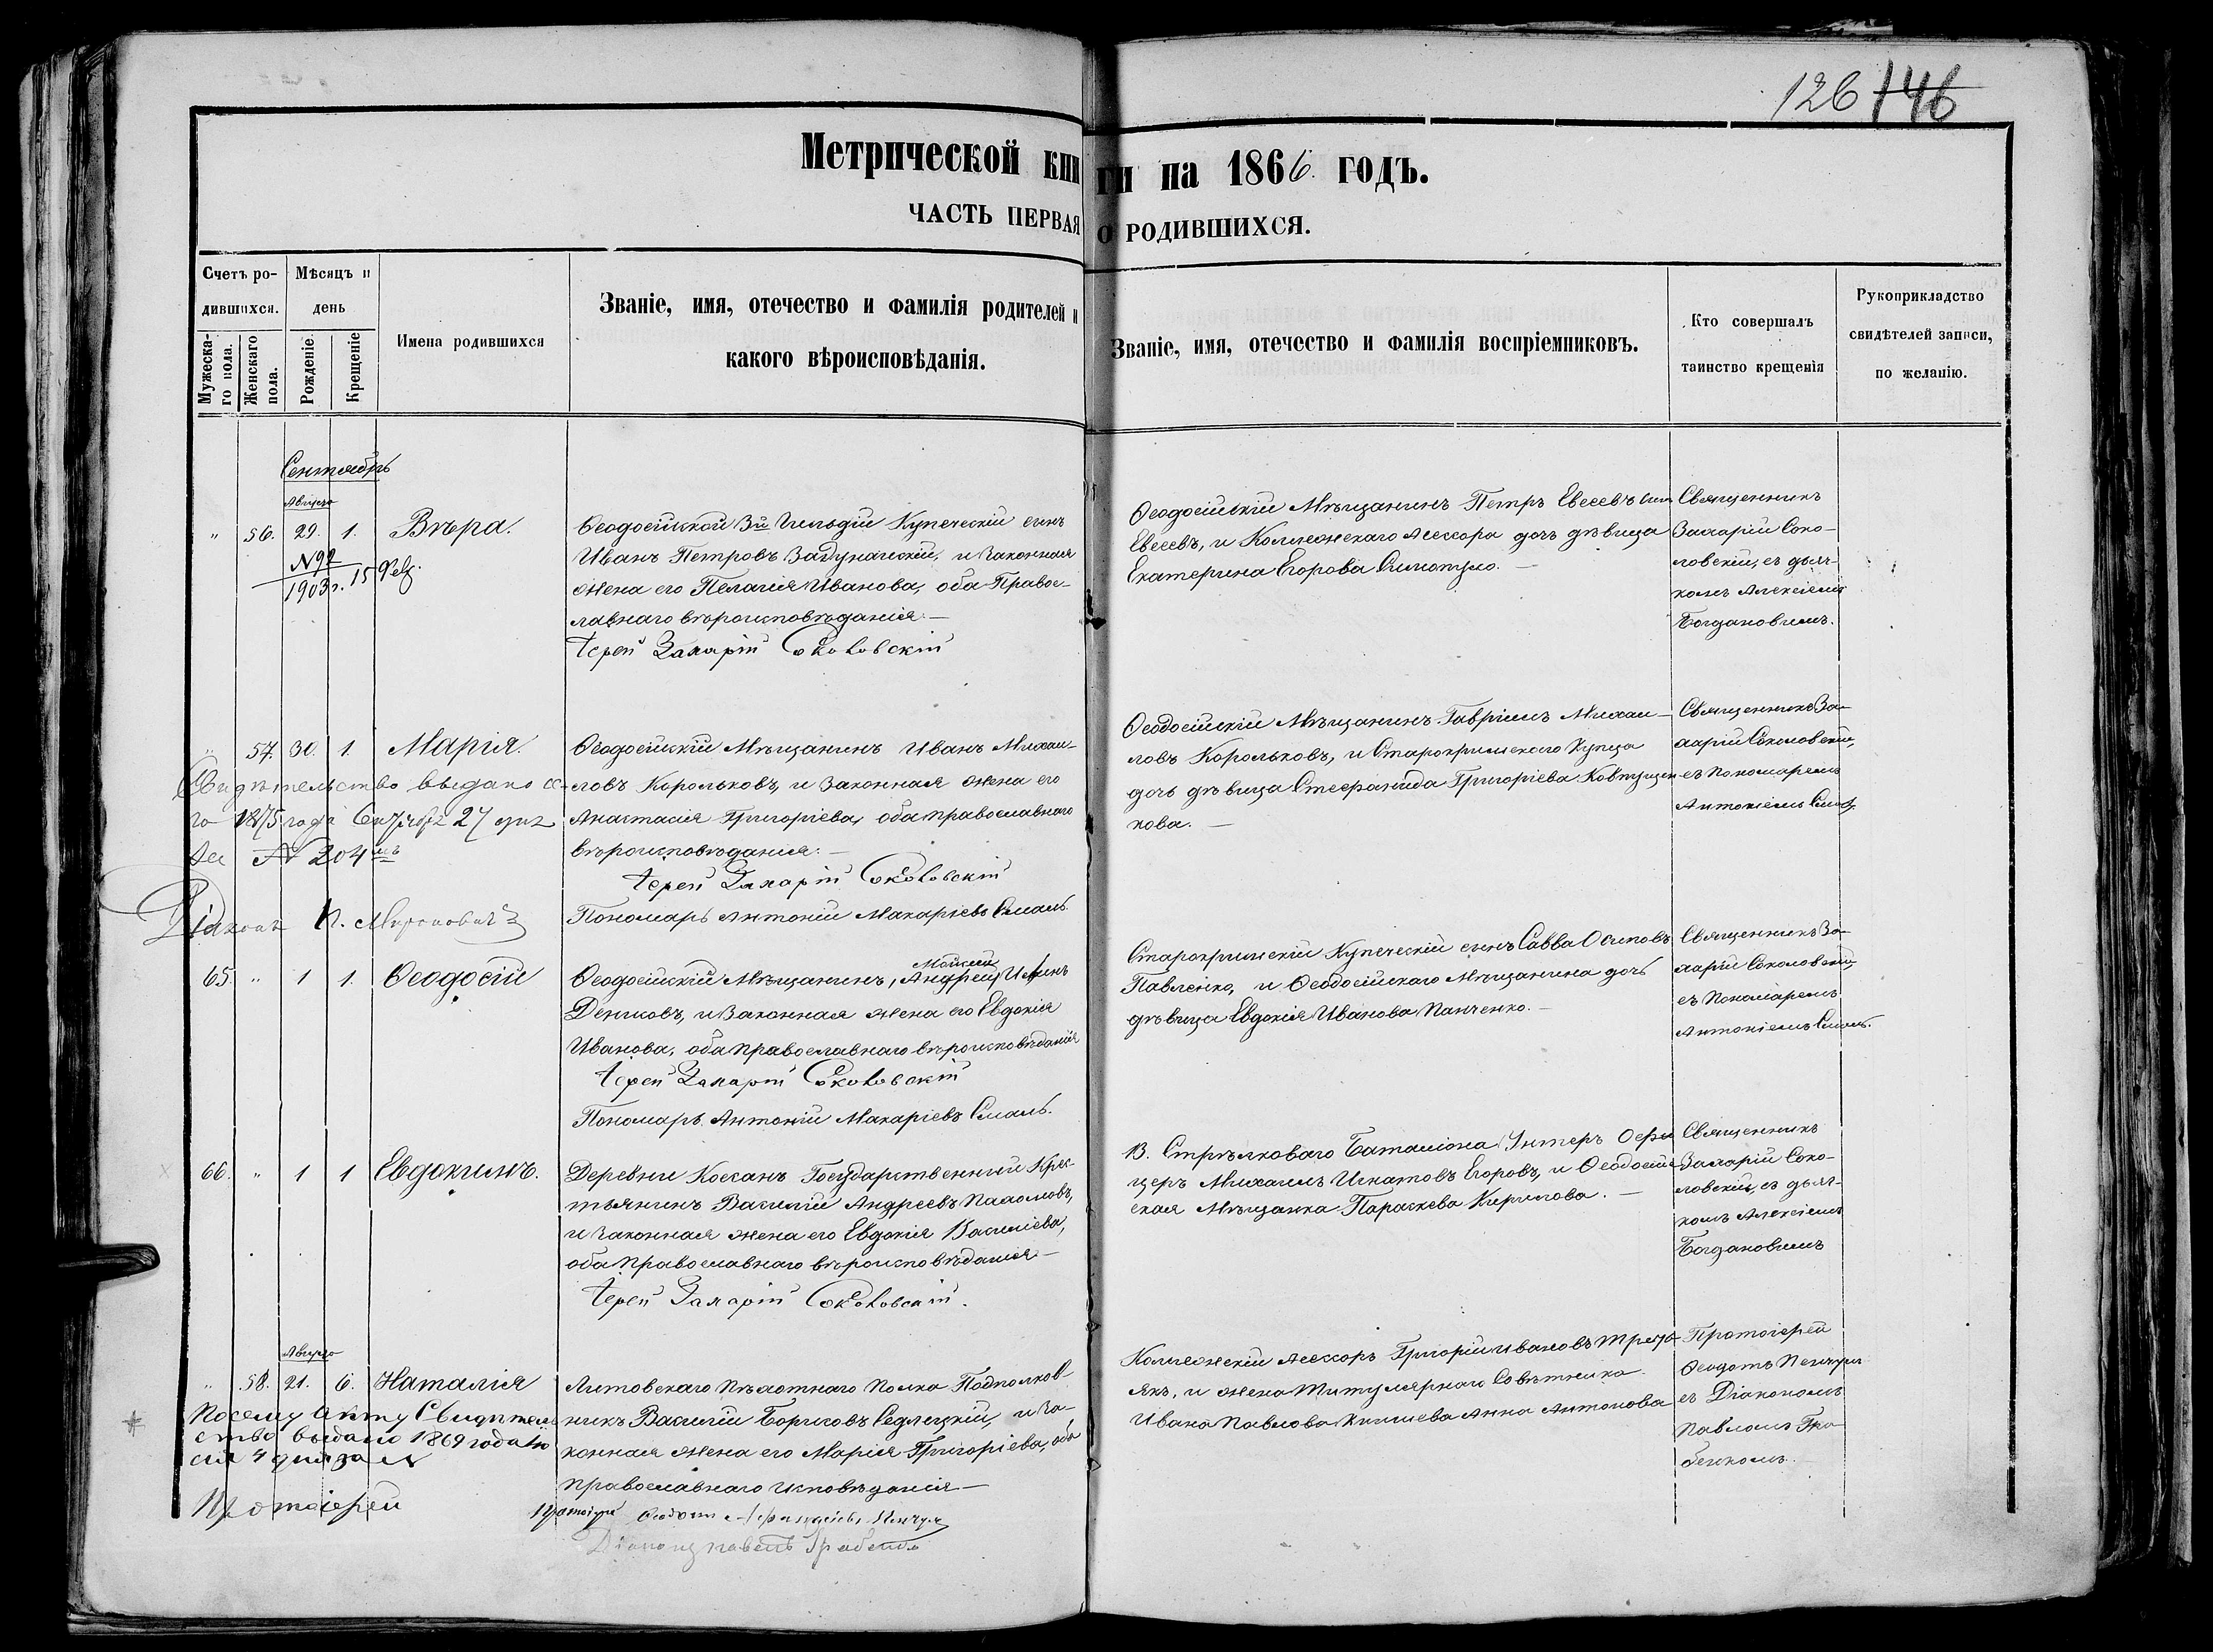 126 146
Метрической книги на 1866 годъ.
ЧАСТЬ ПЕРВАЯ О РОДИВШИХСЯ.
Счетъ ро-
дившихся.
Мужеска-
го пола.
Женскаго
пола.
Мѣсяцъ и
день
Рожденіе.
Крещеніе
Имена родившихся
Званіе, имя, отечество и фамилія родителей и
какого вѣроисповѣданія.
Званіе, имя, отечество и фамилія воспріемниковъ.
Кто совершалъ
таинство крещенія
Рукоприкладство
свидѣтелей записи,
по желанію.
Сентябрь
Августа
" 56. 29. 1. Вѣра.
N 92
1903 г. 15
Ѳеодосійской 3й Гильдіи Купеческій сынъ
Иванъ Петровъ Задунайскій, и законная
жена его Пелагія Иванова, оба Правос-
лавнаго вѣроисповѣданія.—
Іерей Захарій Соколовскій
Ѳеодосійскій Мѣщанинъ Петръ Евсеевъ
Евсеевъ, и Коллежскаго Ассесора дочь дѣвица
Екатерина Егорова
Священникъ
Захарій Соко-
ловскій, съ дьяч-
комъ Алексіемъ
Богдановымъ.
" 57. 30. 1. Марія.
Свидѣтельство выдано се-
го 1875 года 27 дня
за N 204мъ
Діаконъ П. Мироновичъ
Ѳеодосійскій Мѣщанинъ Иванъ Михаи-
ловъ Корольковъ, и законная жена его
Анастасія Григоріева, оба православнаго
вѣроисповѣданія.—
Іерей Захарій Соколовскій
Пономарь Антоній Макаріевъ Смаль.
Ѳеодосійскій Мѣщанинъ Гавріилъ Михаи-
ловъ Корольковъ, и Старокрымскаго Купца
дочь дѣвица Стефанида Григоріева
кова.—
Священникъ За-
харій Соколовскій,
съ Пономаремъ
Антоніемъ
65. " 1 1. Ѳеодосій
Ѳеодосійскій Мѣщанинъ, Андрей
Денисовъ, и законная жена его Евдокія
Иванова, оба православнаго вѣроисповѣданія
Іерей Захарій Соколовскій
Пономарь Антоній Макаріевъ Смаль.
Старокрымскій Купеческій сынъ Савва Осиповъ
Павленко, и Ѳеодосійскаго Мѣщанина дочь
дѣвица Евдокія Иванова Панченко.—
Священникъ За-
харій Соколовскій,
съ Пономаремъ
Антоніемъ Смаль.
66. " 1 1 Евдокимъ.
Деревни Коксанъ Государственный Крес-
тьянинъ Василій Андреевъ
и законная жена его Евдокія Василіева,
оба православнаго вѣроисповѣданія—
Іерей Захарій Соколовскій.
13. Стрѣлковаго Баталіона Унтеръ Офи-
церъ Михаилъ Игнатовъ Егоровъ, и Ѳеодосій-
ская Мѣщанка Параскева Кирилова.—
Священникъ
Захарій Соко-
ловскій, съ дьяч-
комъ Алексіемъ
Богдановымъ
Августа
" 58. 21. 6. Наталія
По сему акту Свидѣтель-
ство выдано 1869 года
4 дня за N
Протоіерей
Литовскаго Пѣхотнаго Полка Подполков-
никъ Василій Борисовъ Седлецкій, и за-
конная жена его Марія Григоріева, оба
православнаго исповѣданія—
Протоіерей Ѳеодотъ
Діаконъ Павелъ Грабенко
Коллежскій Ассесоръ Григорій Ивановъ
якъ, и жена Титулярнаго Совѣтника
Ивана Павлова Анна Антонова
Протоіерей
Ѳеодотъ
съ Діакономъ
Павломъ Гра-
бенкомъ.—